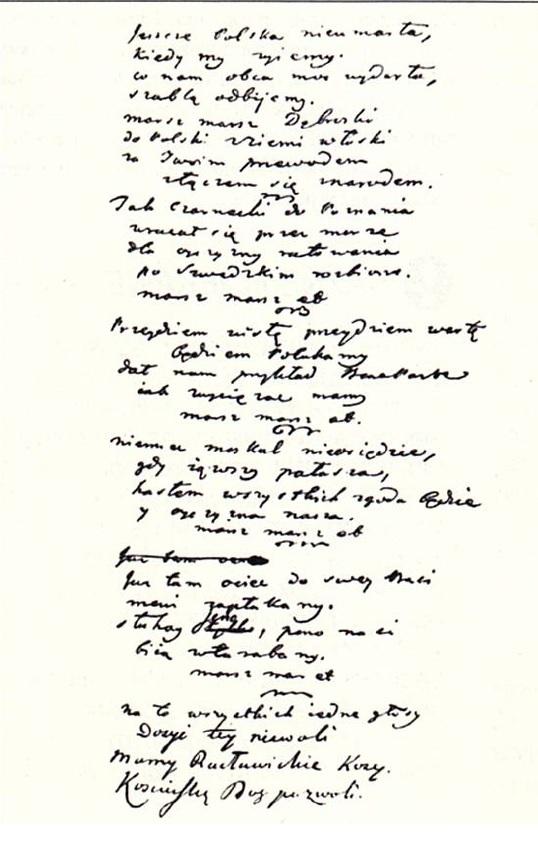 Jeszcze Polska nieumarła,
kiedy my żyiemy.
co nam obca moc wydarła,
szablą odbijemy.
marsz marsz Dębroski
do Polski zziemi włoski
za Twoim przewodem
złączem się znarodem.
Jak Czarnecki do Poznania
wracał się przez morze
dla oyczyzny ratowania
po Szwedzkim rozbiorze.
marsz marsz et
Przeydziem wisłę przeydziem wartę
będziem Polakamy
dał nam przykład Bonaparte
iak zwyciężac mamy
marsz marsz et.
niemiec moskal nieosiędzie,
gdy iąwszy pałasza,
hasłem wszystkich zgoda będzie
y oyczyzna nasza.
marsz marsz et
Już tam ociec
Już tam ociec do swey Basi
mówi zapłakany.
słuchay ieno, pono nasi
bią wtarabany.
marsz mar et
na to wszystkich iedne głosy
Dosyć tey niewoli
mamy Racławickie Kosy.
Kosciuszkę Bóg pozwoli.